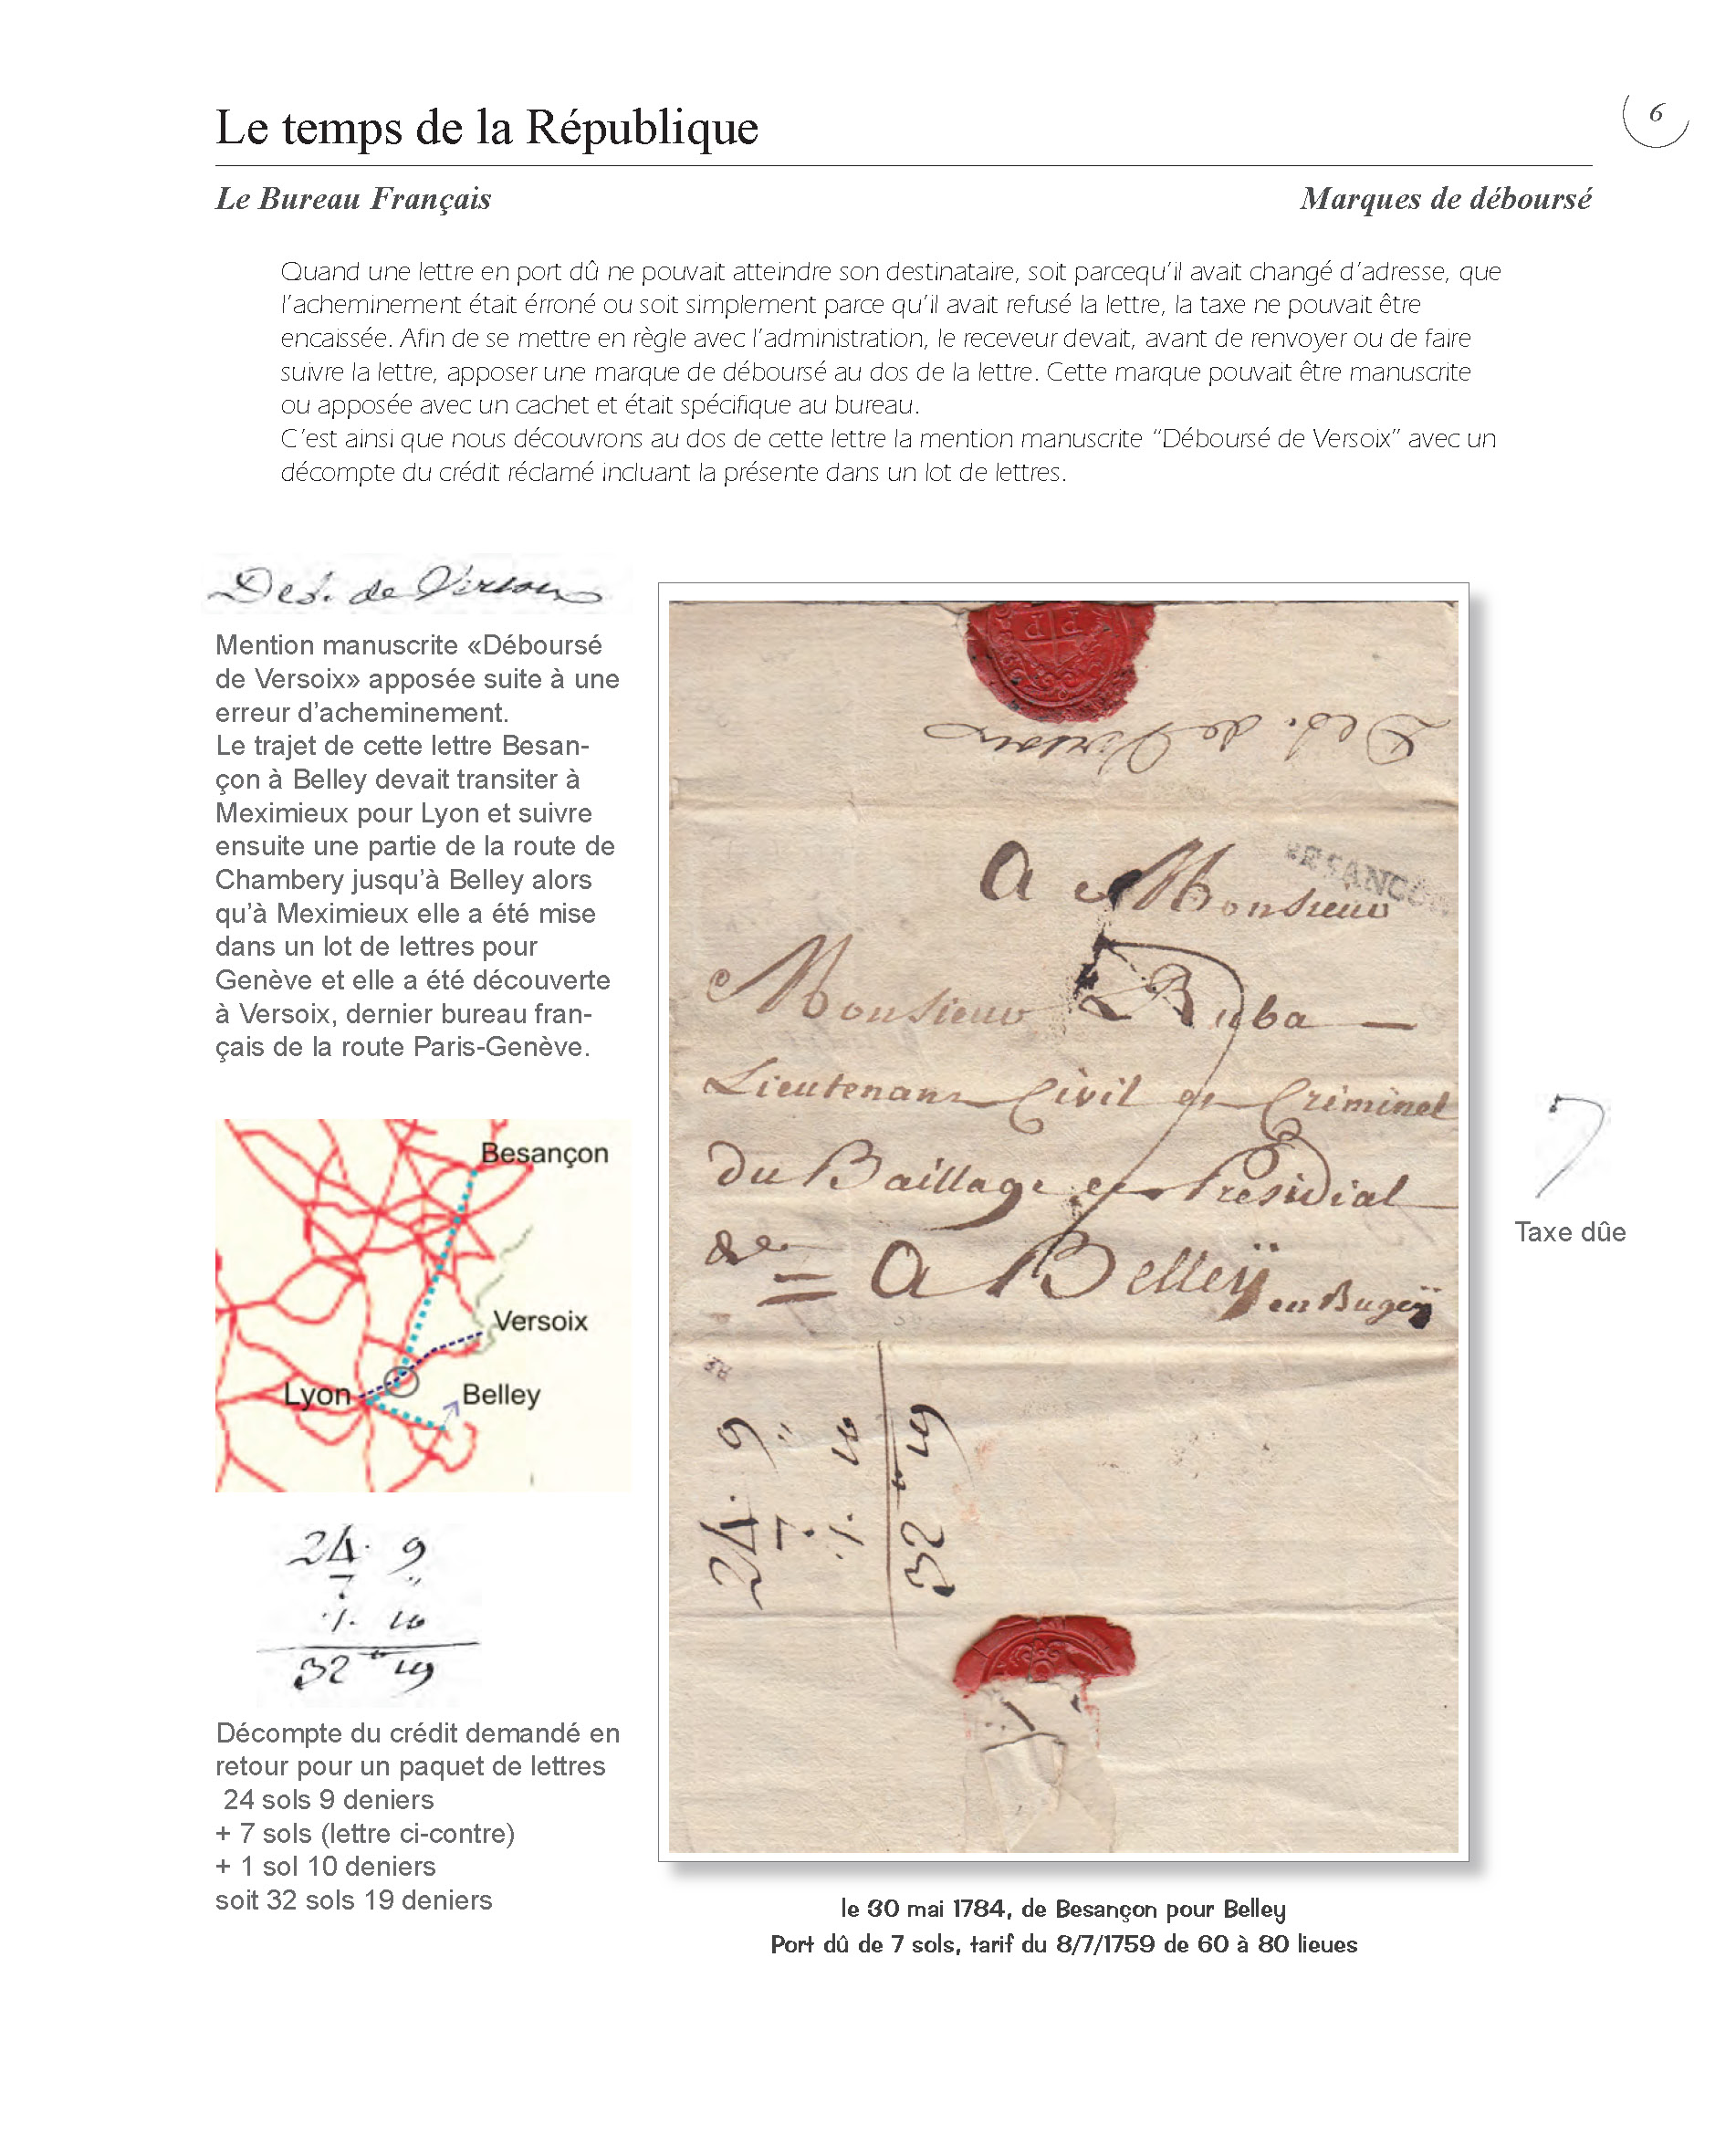 Le temps de la République
6
Le Bureau Français
Marques de déboursé
Quand une lettre en port dû ne pouvait atteindre son destinataire, soit parcequ'il avait changé d'adresse, que
l'acheminement était érroné ou soit simplement parce qu'il avait refusé la lettre, la taxe ne pouvait être
encaissée. Afin de se mettre en règle avec l'administration, le receveur devait, avant de renvoyer ou de faire
suivre la lettre, apposer une marque de déboursé au dos de la lettre. Cette marque pouvait être manuscrite
ou apposée avec un cachet et était spécifique au bureau.
C'est ainsi que nous découvrons au dos de cette lettre la mention manuscrite "Déboursé de Versoix" avec un
décompte du crédit réclamé incluant la présente dans un lot de lettres.
Deb. de Versoix
Mention manuscrite «Déboursé
de Versoix» apposée suite à une
erreur d'acheminement.
Le trajet de cette lettre Besan-
çon à Belley devait transiter à
Meximieux pour Lyon et suivre
ensuite une partie de la route de
Chambery jusqu'à Belley alors
qu'à Meximieux elle a été mise
dans un lot de lettres pour
Genève et elle a été découverte
à Versoix, dernier bureau fran-
çais de la route Paris-Genève.
Besançon
Versoix
Lyon
Belley
24. 9
7 "
1. 10
32 " 19
Décompte du crédit demandé en
retour pour un paquet de lettres
24 sols 9 deniers
+ 7 sols (lettre ci-contre)
+ 1 sol 10 deniers
soit 32 sols 19 deniers
Deb. de Versoix
BESANCON
A Monsieur
Monsieur Ruba —
Lieutenant Civil et Criminel
du Baillage et Presidial
&c = A Belleÿ en Bugeÿ
7
24. 9
7 "
1. 10
32 " 19
7
Taxe dûe
le 30 mai 1784, de Besançon pour Belley
Port dû de 7 sols, tarif du 8/7/1759 de 60 à 80 lieues